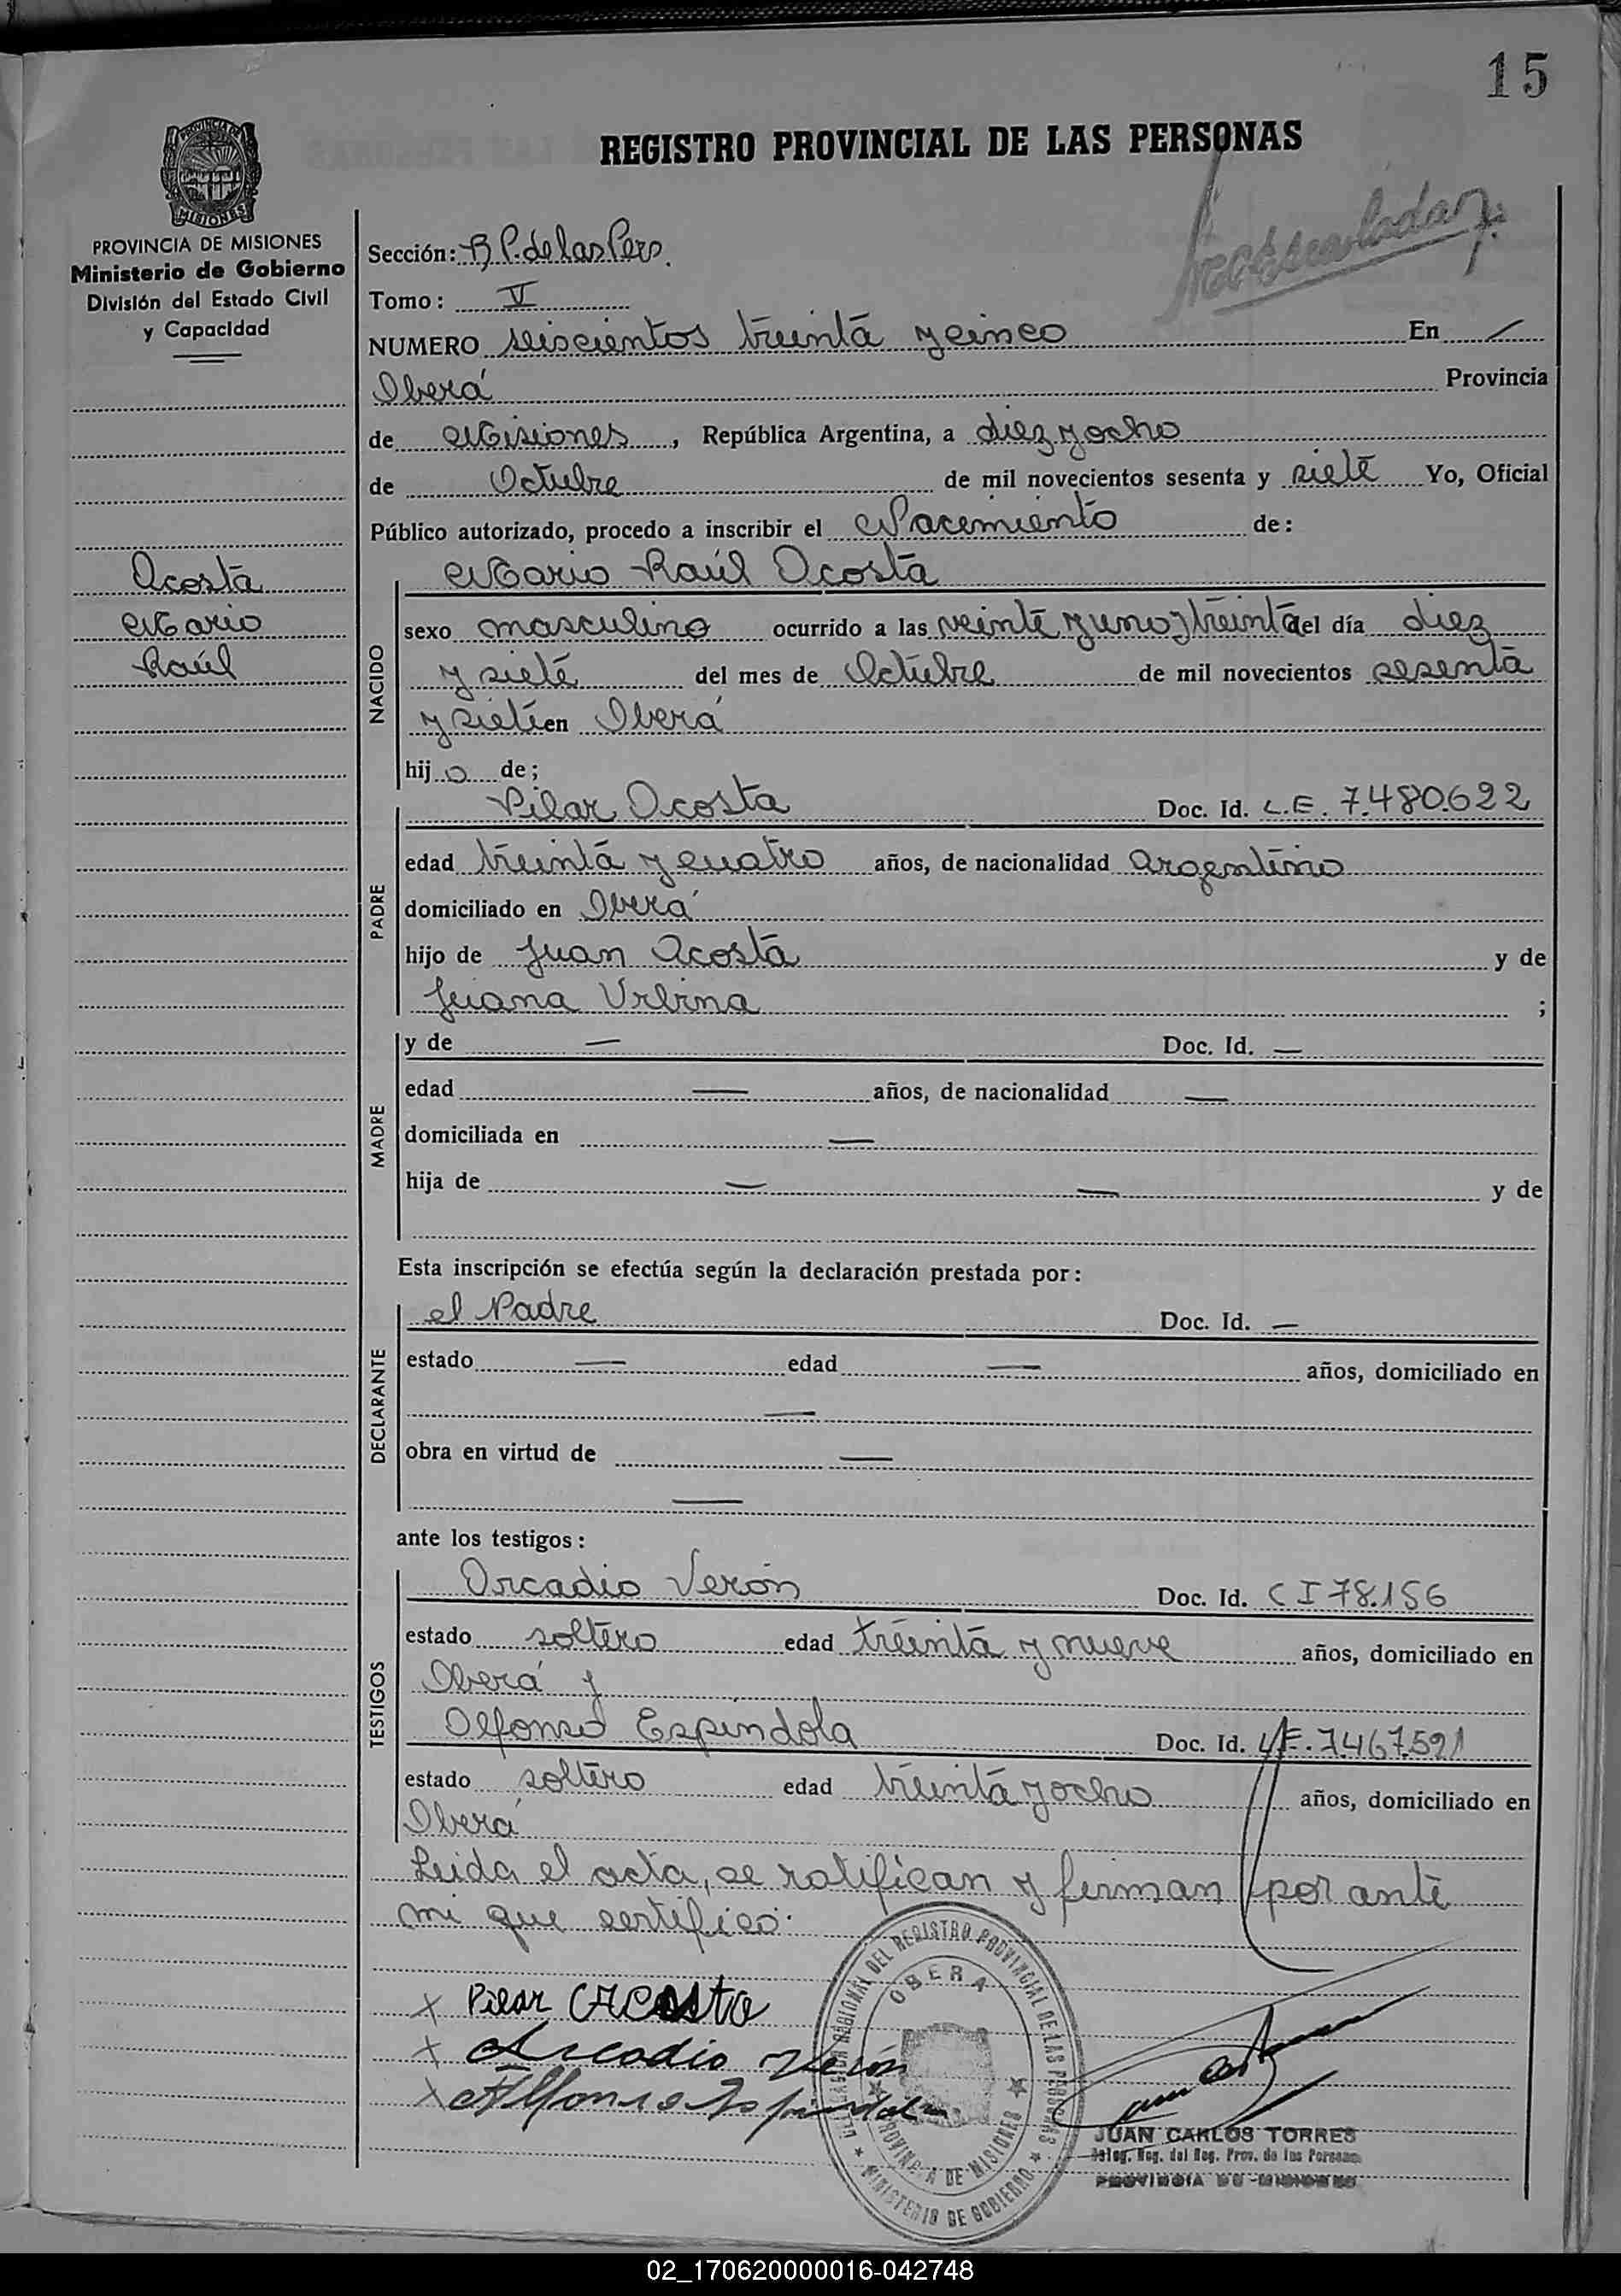 15
REGISTRO PROVINCIAL DE LAS PERSONAS
PROVINCIA DE MISIONES
Ministerio de Gobierno
División del Estado Civil
y Capacidad
Sección: R P. de las Pers.
Tomo: V
NUMERO seiscientos treinta y cinco En
Oberá Provincia
de Misiones, República Argentina, a diez y ocho
de Octubre de mil novecientos sesenta y siete Yo, Oficial
Público autorizado, procedo a inscribir el Nacimiento de:
Acosta
Mario
Raúl
NACIDO
Mario Raúl Acosta
sexo masculino ocurrido a las veinte y uno y treinta del día diez
y siete del mes de Octubre de mil novecientos sesenta
y siete en Oberá
hijo de;
PADRE
Pilar Acosta Doc. Id. L.E. 7.480.622
edad treinta y cuatro años, de nacionalidad argentino
domiciliado en Oberá
hijo de Juan Acosta y de
Juana Urbina ;
MADRE
y de — Doc. Id. —
edad — años, de nacionalidad —
domiciliada en —
hija de — — y de
Esta inscripción se efectúa según la declaración prestada por:
DECLARANTE
el Padre Doc. Id. —
estado — edad — años, domiciliado en
—
obra en virtud de —
—
ante los testigos:
TESTIGOS
Arcadio Verón Doc. Id. C I 78.156
estado soltero edad treinta y nueve años, domiciliado en
Oberá y
Alfonso Espindola Doc. Id. L.E. 7.467.591
estado soltero edad treinta y ocho años, domiciliado en
Oberá
Leida el acta, se ratifican y firman por ante
mi que certifico:
x Pilar Acosta
x Arcadio Verón
x Alfonso Espindola
DELEGACION REGIONAL DEL REGISTRO PROVINCIAL DE LAS PERSONAS
OBERA
PROVINCIA DE MISIONES
MINISTERIO DE GOBIERNO
JUAN CARLOS TORRES
Deleg. Reg. del Reg. Prov. de las Personas
PROVINCIA DE MISIONES
02_170620000016-042748